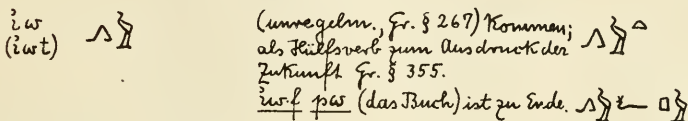 i̓w (unregelm., Gr. § 267) Kommen;
(i̓wt) als Hülfsverb zum Ausdruck der
Zukunft Gr. § 355.
i̓w·f pw (das Buch) ist zu Ende.